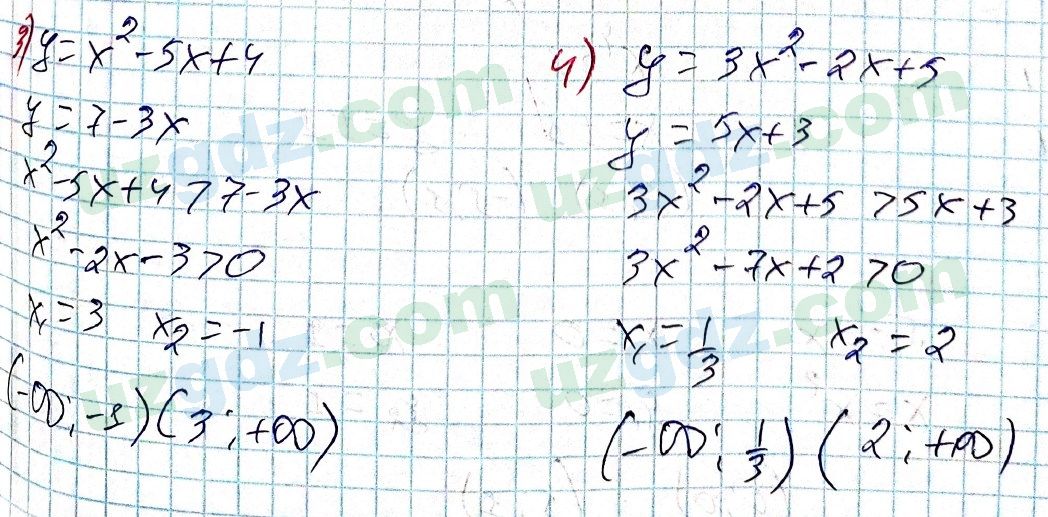 3) y = x² - 5x + 4
y = 7 - 3x
x² - 5x + 4 > 7 - 3x
x² - 2x - 3 > 0
x₁ = 3 x₂ = -1
(-∞; -1) (3; +∞)
4) y = 3x² - 2x + 5
y = 5x + 3
3x² - 2x + 5 > 5x + 3
3x² - 7x + 2 > 0
x₁ = 1/3 x₂ = 2
(-∞; 1/3) (2; +∞)
uzgdz.com
uzgdz.com
uzgdz.com
uzgdz.com